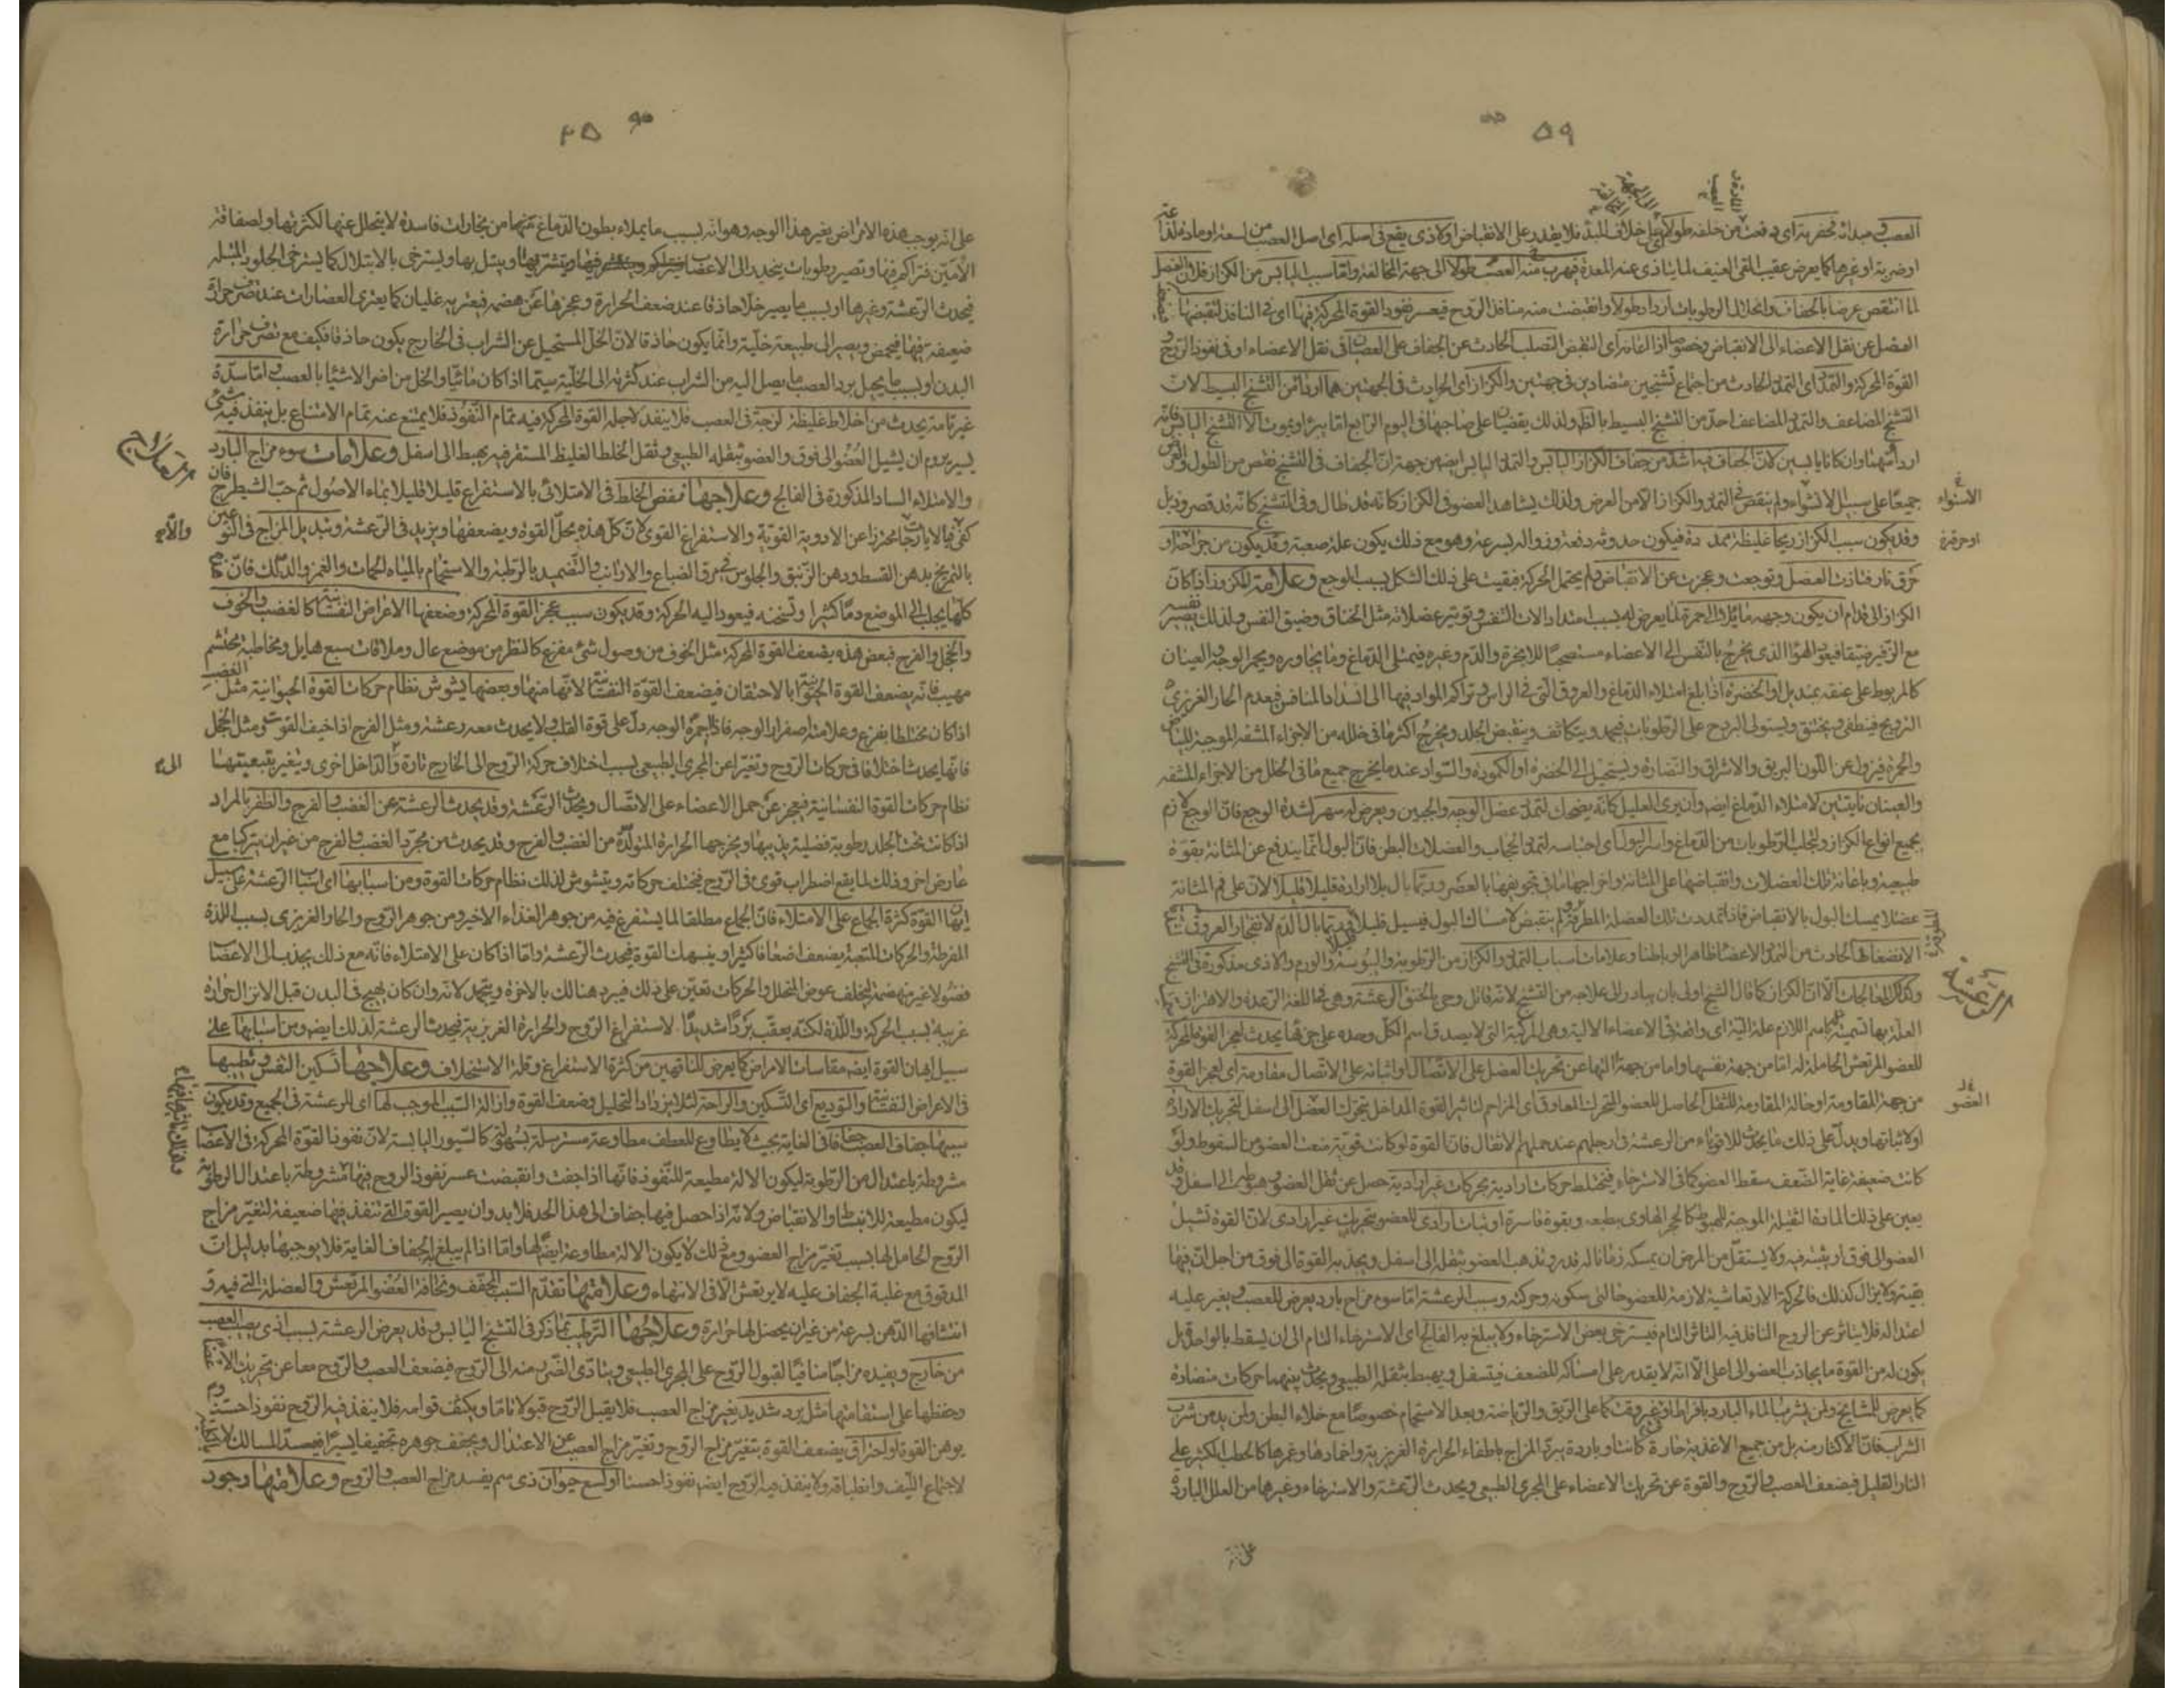 ٥٩
العصب في مبدائه فحفر به اى دفعت من خلفه طولا الى خلاف المبدأ فلا يقدر على الانقباض او لاذى يقع فى اصله اى اصل العصب من لسعة او مادة لذاعة
او ضربة او غيرها كما يعرض عقيب القئ العنيف لما يتاذى عنه المعدة فيهرب منه العصب طولا الى جهة المخالفة واما سبب اليابس من الكزاز فلان العضل
لما انتقص عرضا بالجفاف وانحلال الرطوبات ازداد طولا وانقبضت منه منافذ الروح فيعسر نفوذ القوة المحركة فيها اى فى المنافذ لتقبضها
الفضل عن نقل الاعضاء الى الانقباض وخصوصا اذا اعانه اى النقبض التصلب الحادث عن الجفاف على العصيان فى نقل الاعضاء او فى نفوذ الروح و
القوة المحركة والتمدد اى التمدد الحادث من اجتماع تشنجين متضادين فى جهتين والكزاز اى الحادث فى الجهتين هما اردأ من التشنج البسيط لان
التشنج المضاعف والتمدد المضاعف احد من التشنج البسيط بالظم ولذلك يقضيان على صاحبها فى اليوم الرابع اما ببرء او بموت الا ان التشنج اليابس فانه
اردأ منهما وان كانا يابسين لان الجفاف فيه اشد من جفاف الكزاز اليابس والتمدد اليابس ايضا من جهة ان الجفاف فى التشنج نقص من الطول والعرض
جميعا على سبيل الاستواء ولم ينقص فى التمدد والكزاز الا من العرض ولذلك يشاهد العضو فى الكزاز كانه قد طال وفى التشنج كانه قد قصر وذبل
الاستواء
وقد يكون سبب الكزاز ريحا غليظة ممددة فيكون حدوثه دفعة وزواله بسرعة وهو مع ذلك يكون علة صعبة وقد يكون من جراحة او
او حرقة
حرق نار فتاذت العضل وتوجعت وعجزت عن الانقباض ولم يحتمل الحركة فبقيت على ذلك الشكل بسبب الوجع وعلامة الكزاز اذا كان
الكزاز الى قدام ان يكون وجهه مائلا الى الحمرة لما يعرض له بسبب امتداد الات النفس وتوتير عضلاته مثل الخناق وضيق النفس ولذلك يصير نفسه
مع الزفير ضيقا فيعود الهواء الذى يخرج بالنفس الى الاعضاء مستصحبا للابخرة والدم وغيره فيمتلى الدماغ وما يجاوره ويحمر الوجه والعينان
كالمربوط على عنقه بمنديل او الخضرة اذا بلغ امتلاء الدماغ والعروق التى فى الراس وتراكم المواد فيها الى انسداد المنافس فيعدم الحار الغريزى
الترويح فينطفى ويختنق ويستولى البرد على الرطوبات فيجمد ويتكاثف وينقبض الجلد ويخرج اكثر ما فى خلله من الاجزاء المشفه الموجبة للبياض
والحمرة فيزول عن اللون البريق والاشراق والنضارة ويستحيل الى الخضرة او الكمودة والسواد عندما يخرج جميع ما فى الخلل من الاجزاء المشفه
والعينان ناتئتين لامتلاء الدماغ ايضا وان يرى العليل كانه يضحك لتمدد عضل الوجه والجبين ويعرض له سهر لشدة الوجع فان الوجع لازم
بجميع انواع الكزاز ولتحلب الرطوبات من الدماغ واسر البول اى احتباسه لتمدد الحجاب والعضلات البطن فان البول انما يندفع عن المثانة بقوة
طبيعية وباعانة تلك العضلات وانقباضها على المثانة واخراجها ما فى تجويفها بالعصر وربما بال بلا ارادة قليلا قليلا لان على فم المثانة
عضلا يمسك البول بالانقباض فاذا تمددت تلك العضلة المطرقة ولم ينقبض لامساك البول فيسيل قليلا قليلا وربما بال الدم لانفجار العروق
الانضغاطها الحادث من التمدد الاعضا ظاهرا وباطنا وعلامات اسباب التمدد والكزاز من الرطوبة واليبوسة والورم والاذى مذكورة فى التشنج
وكذلك المعالجات الا ان الكزاز كما قال الشيخ اولى بان يبادر الى علاجه من التشنج لانه قاتل وحى بالخنق الرعشة وهى فى اللغة الرعدة والاهتزاز
الرعشة
العلة بها تسمية باسم اللازم علة آلية اى واقعة فى الاعضاء الالية وهى المركبة التى لا يصدق اسم الكل وحده على جزءها يحدث لعجز القوة المحركة
للعضو المرتعش الحاملة له اما من جهة نفسها واما من جهة التها عن تحريك العضل على الاتصال او اثباته على الاتصال مقاومة اى لعجز القوة
من جهة المقاومة او حالة المقاومة للثقل الحاصل للعضو المتحرك المعاوق اى المزاحم لتاثير القوة المداخل بتحرك العضل الى اسفل لتحريك الارادة
العضو
او لاثباتها ويدل على ذلك ما يحدث للاقوياء من الرعشة فى ارجلهم عند حملهم الاثقال فان القوة لو كانت قوية منعت العضو من السقوط ولو
كانت ضعيفة غاية الضعف سقط العضو كما فى الاسترخاء فيختلط حركات ارادية بحركات غير ارادية حصل عن ثقل العضو وهبوطه الى اسفل وقد
يعين على ذلك المادة الثقيلة الموجبة للهبوط كالحجر الهاوى بطبعه وبقوة قاسرة او ثبات ارادى للعضو بتحريك غير ارادى لان القوة تشيل
العضو الى فوق او يثبته فيه ولا يستقل من المرض ان يمسكه زمانا له قدر ويذهب العضو بثقله الى اسفل ويجذبه القوة الى فوق من اجل ان فيها
بقية ولا يزال كذلك فالحركة الارتعاشية لازمة للعضو حالتى سكونه وحركته وسبب الرعشة اما سوء مزاج بارد يعرض للعصب ويغير عليه
اعتداله فلا يتاثر عن الروح النافذ فيه التاثر التام فيسترخى بعض الاسترخاء ولا يبلغ به الفالج اى الاسترخاء التام الى ان يسقط بالواحد بل
يكون له من القوة ما يجاذب العضو الى اعلى الا انه لا يقدر على امساكه للضعف فيتسفل ويهبط بثقله الطبيعى ويحدث بينهما حركات متضادة
كما يعرض للمشايخ ولمن يشرب الماء البارد بافراط او فى غير وقته كما على الريق والرياضة وبعد الاستحمام خصوصا مع خلاء البطن ولمن يدمن شرب
الشراب فان الاكثار منه بل من جميع الاغذية حارة كانت او باردة يبرد المزاج باطفاء الحرارة الغريزية واخمادها وغمرها كالحطب الكثير على
النار القليل فيضعف العصب والروح والقوة عن تحريك الاعضاء على المجرى الطبيعى ويحدث الرعشة والاسترخاء وغيرها من العلل الباردة
على انه
على انه يوجب هذه الامراض بغير هذا الوجه وهو انه بسبب ما يملاء بطون الدماغ منها من بخارات فاسدة لا يتحلل عنها لكثرتها ولصفاقة
الأمين فتراكم فيها وتصير رطوبات ينحدر الى الاعصاب ويتشربها ويبتل بها ويسترخى بالابتلال كما يسترخى الجلود المبتلة
فيحدث الرعشة وغيرها او بسبب ما يصير خلا حاذقا عند ضعف الحرارة وعجزها عن هضمه فيعتريه غليان كما يعترى العصارات عند تصرف حرارة
ضعيفة فيها فيحمض ويصير الى طبيعة خلية وانما يكون حاذقا لان الخل المستحيل عن الشراب فى الخارج يكون حاذقا فكيف مع تصرف حرارة
البدن او بسبب ما يحيل برد العصب ما يصل اليه من الشراب عند كثرته الى الخلية سيما اذا كان مائيا والخل من اضر الاشياء بالعصب واما سدة
غير تامة يحدث من اخلاط غليظة لزجة فى العصب فلا ينفذ لاجله القوة المحركة فيه تمام النفوذ فلا يمتنع عنه تمام الامتناع بل ينفذ فيه شئ
يسير يروم ان يشيل العضو الى فوق والعضو بثقله الطبيعى وثقل الخلط الغليظ المستقر فيه يهبط الى اسفل وعلامات سوء مزاج البارد
والامتلاء الساد المذكورة فى الفالج وعلاجها نفض الخلط فى الامتلائى بالاستفراغ قليلا قليلا بماء الاصول ثم حب الشيطرج فان
كفى والا يارجا محترزا عن الادوية القوية والاستفراغ القوى لان كل هذه يحل القوة ويضعفها ويزيد فى الرعشة وتبديل المزاج فى النوعين
بالتمريخ بدهن القسط ودهن الزنبق والجلوس فى مرق الضباع والارانب والتضميد بالرطبة والاستحمام بالمياه الحمات والغمز والدلك فان
كلها يجلب الى الموضع دما كثيرا وتسخنه فيعود اليه الحركة وقد يكون سبب عجز القوة المحركة وضعفها الاعراض النفسانية كالغضب والخوف
والخجل والفرح فبعض هذه يضعف القوة المحركة مثل الخوف من وصول شئ مفزع كالنظر من موضع عال وملاقات سبع هايل ومخاطبة محتشم
مهيب فانه يضعف القوة الحيوانية بالاحتقان فيضعف القوة النفسانية لانها منها وبعضها يشوش نظام حركات القوة الحيوانية مثل الغضب
اذا كان مختلطا بفزع وعلامته اصفرار الوجه فاذا احمرة الوجه دل على قوة القلب ولا يحدث معه رعشة ومثل الفرح اذا خيف الفوت ومثل الخجل
فانها يحدث اختلافا فى حركات الروح وتغيرا عن المجرى الطبيعى بسبب اختلاف حركة الروح الى الخارج تارة والداخل اخرى ويتغير بتبعيتها
نظام حركات القوة النفسانية فيعجز عن حمل الاعضاء على الاتصال ويحدث الرعشة وقد يحدث الرعشة عن الغضب والفرح والظفر بالمراد
اذا كانت تحت الجلد رطوبة فضلية يذيبها ويخرجها الحرارة المتولدة من الغضب والفرح وقد يحدث من مجرد الغضب والفرح من غير ان يتركبا مع
عارض اخر وذلك لما يقع اضطراب قوى فى الروح فيختلف حركاته ويتشوش لذلك نظام حركات القوة ومن اسبابها اى اسباب الرعشة على سبيل
ايهان القوة كثرة الجماع على الامتلاء فان الجماع مطلقا لما يستفرغ فيه من جوهر الغذاء الاخير ومن جوهر الروح والحار الغريزى بسبب اللذة
المفرطة والحركات المتعبة يضعف اضعافا كثيرا وينهك القوة فيحدث الرعشة واما اذا كان على الامتلاء فانه مع ذلك يجذب الى الاعضا
فضولا غير منهضمة ليخلف عوض المتحلل والحركات تعين على ذلك فيبرد هنالك بالاخرة ويتجمد لانه وان كان يهيج فى البدن قبل الانزال حرارة
غريبة بسبب الحركة واللذة لكنه يعقب بردا شديدا لاستفراغ الروح والحرارة الغريزية فيحدث الرعشة لذلك ايضا ومن اسبابها على
سبيل ايهان القوة ايضا مقاساة الامراض كما يعرض للناقهين من كثرة الاستفراغ وقلة الاستخلاف وعلاجها تسكين النفس وتطييبها
فى الاعراض النفسانية والتوديع اى التسكين والراحة لئلا يزداد التحليل وضعف القوة وازالة السبب الموجب لها اى للرعشة فى الجميع وقد يكون
سببها جفاف العصب جفافا فى الغاية بحيث لا يطاوع للعطف مطاوعة مسترسلة بسهولة كالسيور اليابسة لان نفوذ القوة المحركة فى الاعضا
مشروطة باعتدال من الرطوبة ليكون الالة مطيعة للنفوذ فانها اذا جفت وانقبضت عسر نفوذ الروح فيها مشروطة باعتدال الرطوبة
ليكون مطيعة للانبساط والانقباض ولانه اذا حصل فيها جفاف الى هذا الحد فلا بد وان يصير القوة التى تنفذ فيها ضعيفة لتغير مزاج
الروح الحامل لها بسبب تغير مزاج العضو ومع ذلك لا يكون الالة مطاوعة ايضا لها واما اذا لم يبلغ الجفاف الغاية فلا يوجبها بدليل ان
المدقوق مع غلبة الجفاف عليه لا يرتعش الا فى الانتهاء وعلامتها تقدم السبب المجفف ونحافة العضو المرتعش والعضلة التى فيه و
انتشافها الدهن بسرعة من غير ان يحصل لها حرارة وعلاجها الترطيب بما ذكر فى التشنج اليابس وقد يعرض الرعشة بسبب اذى يصيب العصب
من خارج ويفيده مزاجا منافيا لقبول الروح على المجرى الطبيعى ويتادى الضرر منه الى الروح فيضعف العصب والروح معا عن تحريك الاعضا
وحفظها على استقامتها مثل برد شديد يغير مزاج العصب فلا يقبل الروح قبولا تاما ويكثف قوامه فلا ينفذ فيه الروح نفوذا حسنا
يوهن القوة او احتراق يضعف القوة بتغير مزاج الروح وتغير مزاج العصب عن الاعتدال ويجفف جوهره تجفيفا يسيرا فيفسد المسالك
لاجتماع الليف وانطباقه ولا ينفذ فيه الروح ايضا نفوذا حسنا او لسع حيوان ذى سم يفسد مزاج العصب والروح وعلامتها وجود